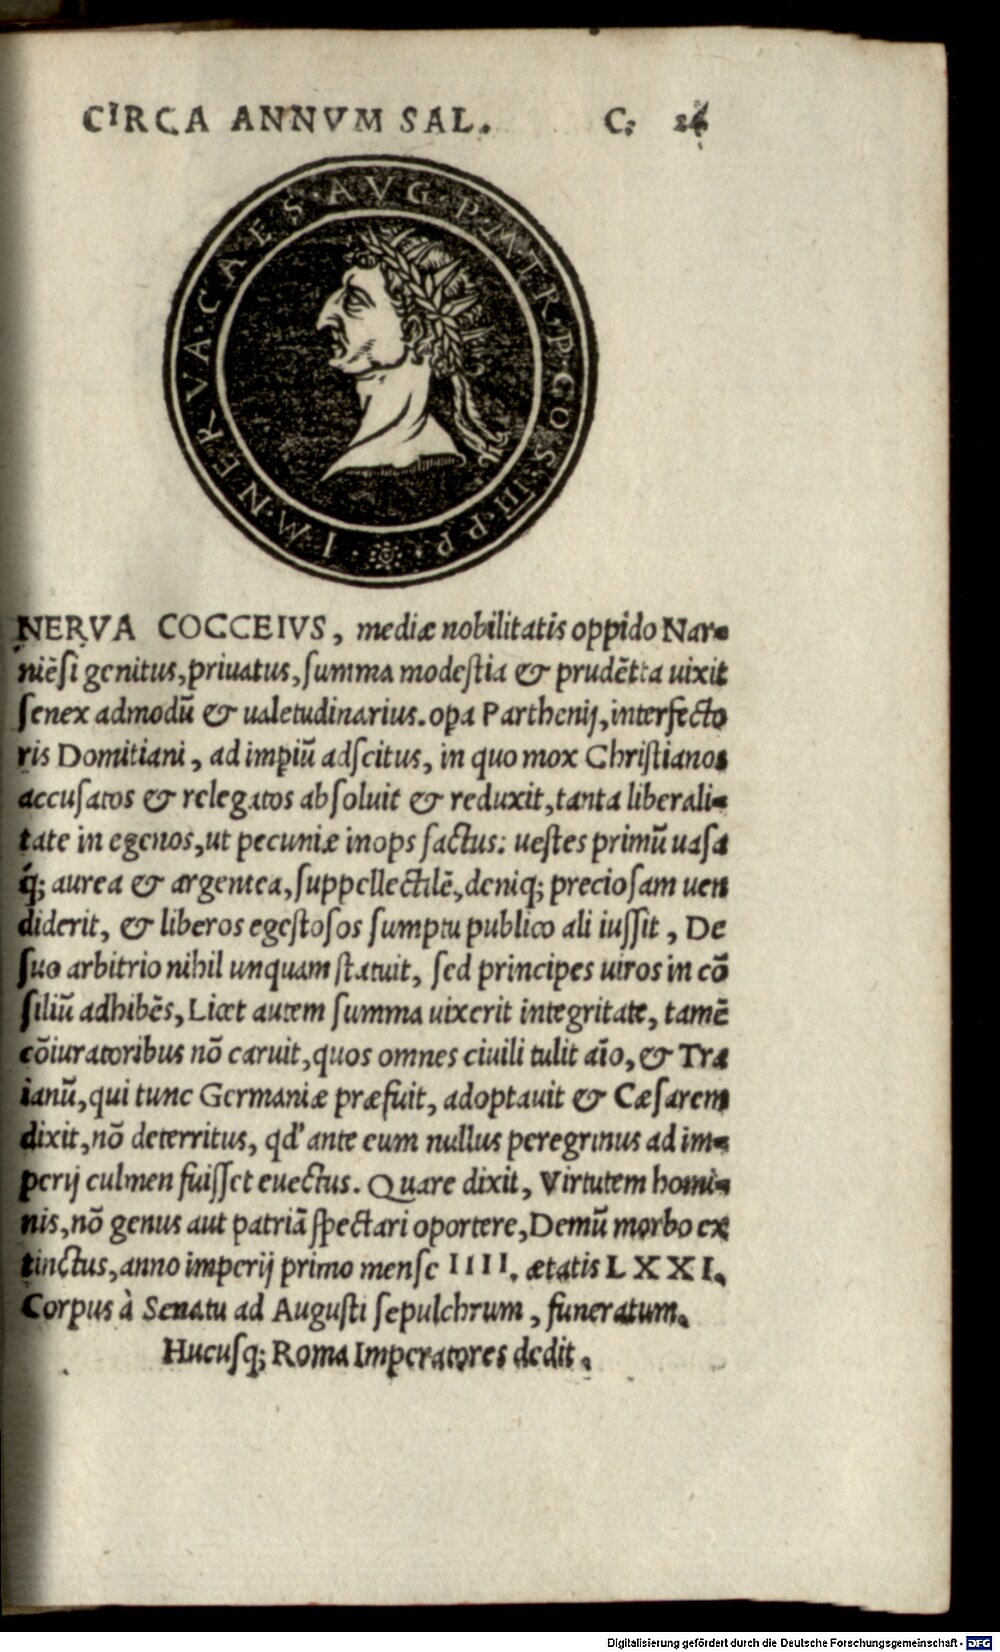 CIRCA ANNVM SAL. C.
I·M·NERVA·CAES·AVG·P·M·TR·P·COS·III·P·P·
NERVA COCCEIVS, mediæ nobilitatis oppido Nar-
niẽsi genitus, priuatus, summa modestia & prudẽtia uixit
senex admodũ & ualetudinarius. opa Parthenij, interfecto
ris Domitiani, ad impiũ adscitus, in quo mox Christianos
accusatos & relegatos absoluit & reduxit, tanta liberali-
tate in egenos, ut pecuniæ inops factus: uestes primũ uasa
q́; aurea & argentea, suppellectilẽ, deniq; preciosam uen
diderit, & liberos egestosos sumptu publico ali iussit, De
suo arbitrio nihil unquam statuit, sed principes uiros in cõ
siliũ adhibẽs, Licet autem summa uixerit integritate, tamẽ
cõiuratoribus nõ caruit, quos omnes ciuili tulit aĩo, & Tra
ianũ, qui tunc Germaniæ præfuit, adoptauit & Cæsarem
dixit, nõ deterritus, qd' ante eum nullus peregrinus ad im-
perij culmen fuisset euectus. Quare dixit, Virtutem homi-
nis, nõ genus aut patriã spectari oportere, Demũ morbo ex
tinctus, anno imperij primo mense IIII. ætatis LXXI.
Corpus à Senatu ad Augusti sepulchrum, funeratum.
Hucusq; Roma Imperatores dedit.
Digitalisierung gefördert durch die Deutsche Forschungsgemeinschaft - DFG